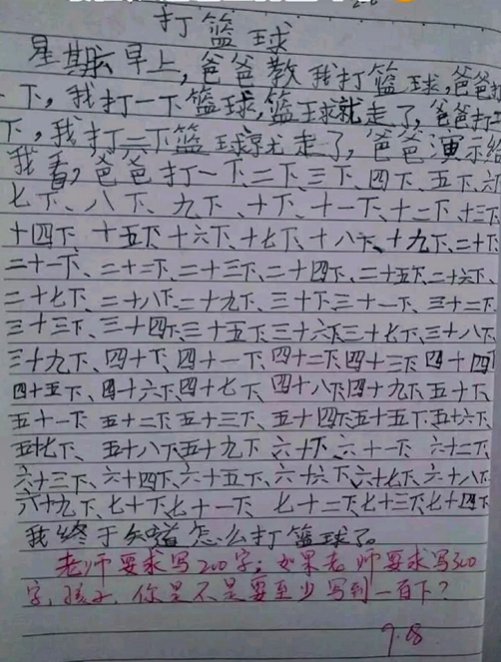 打篮球
星期六早上,爸爸教我打篮球,爸爸打
一下,我打一下篮球,篮球就走了,爸爸打二
下,我打二下篮球就走了,爸爸演示给
我看,爸爸打一下、二下、三下、四下、五下、六
七下、八下、九下、十下、十一下、十二下、十三下
十四下、十五下、十六下、十七下、十八下、十九下、二十下
二十一下、二十二下、二十三下、二十四下、二十五下、二十六下、
二十七下、二十八下、二十九下、三十下、三十一下、三十二下
三十三下、三十四下、三十五下、三十六下、三十七下、三十八下、
三十九下、四十下、四十一下、四十二下、四十三下、四十四
四十五下、四十六下、四十七下、四十八下、四十九下、五十下、
五十一下、五十二下、五十三下、五十四下、五十五下、五十六下、
五十七下、五十八下、五十九下、六十下、六十一下、六十二下、
六十三下、六十四下、六十五下、六十六下、六十七下、六十八下、
六十九下、七十下、七十一下、七十二下、七十三下、七十四下
我终于知道怎么打篮球了。
老师要求写200字;如果老师要求写300
字,孩子,你是不是要至少写到一百下?
9.08